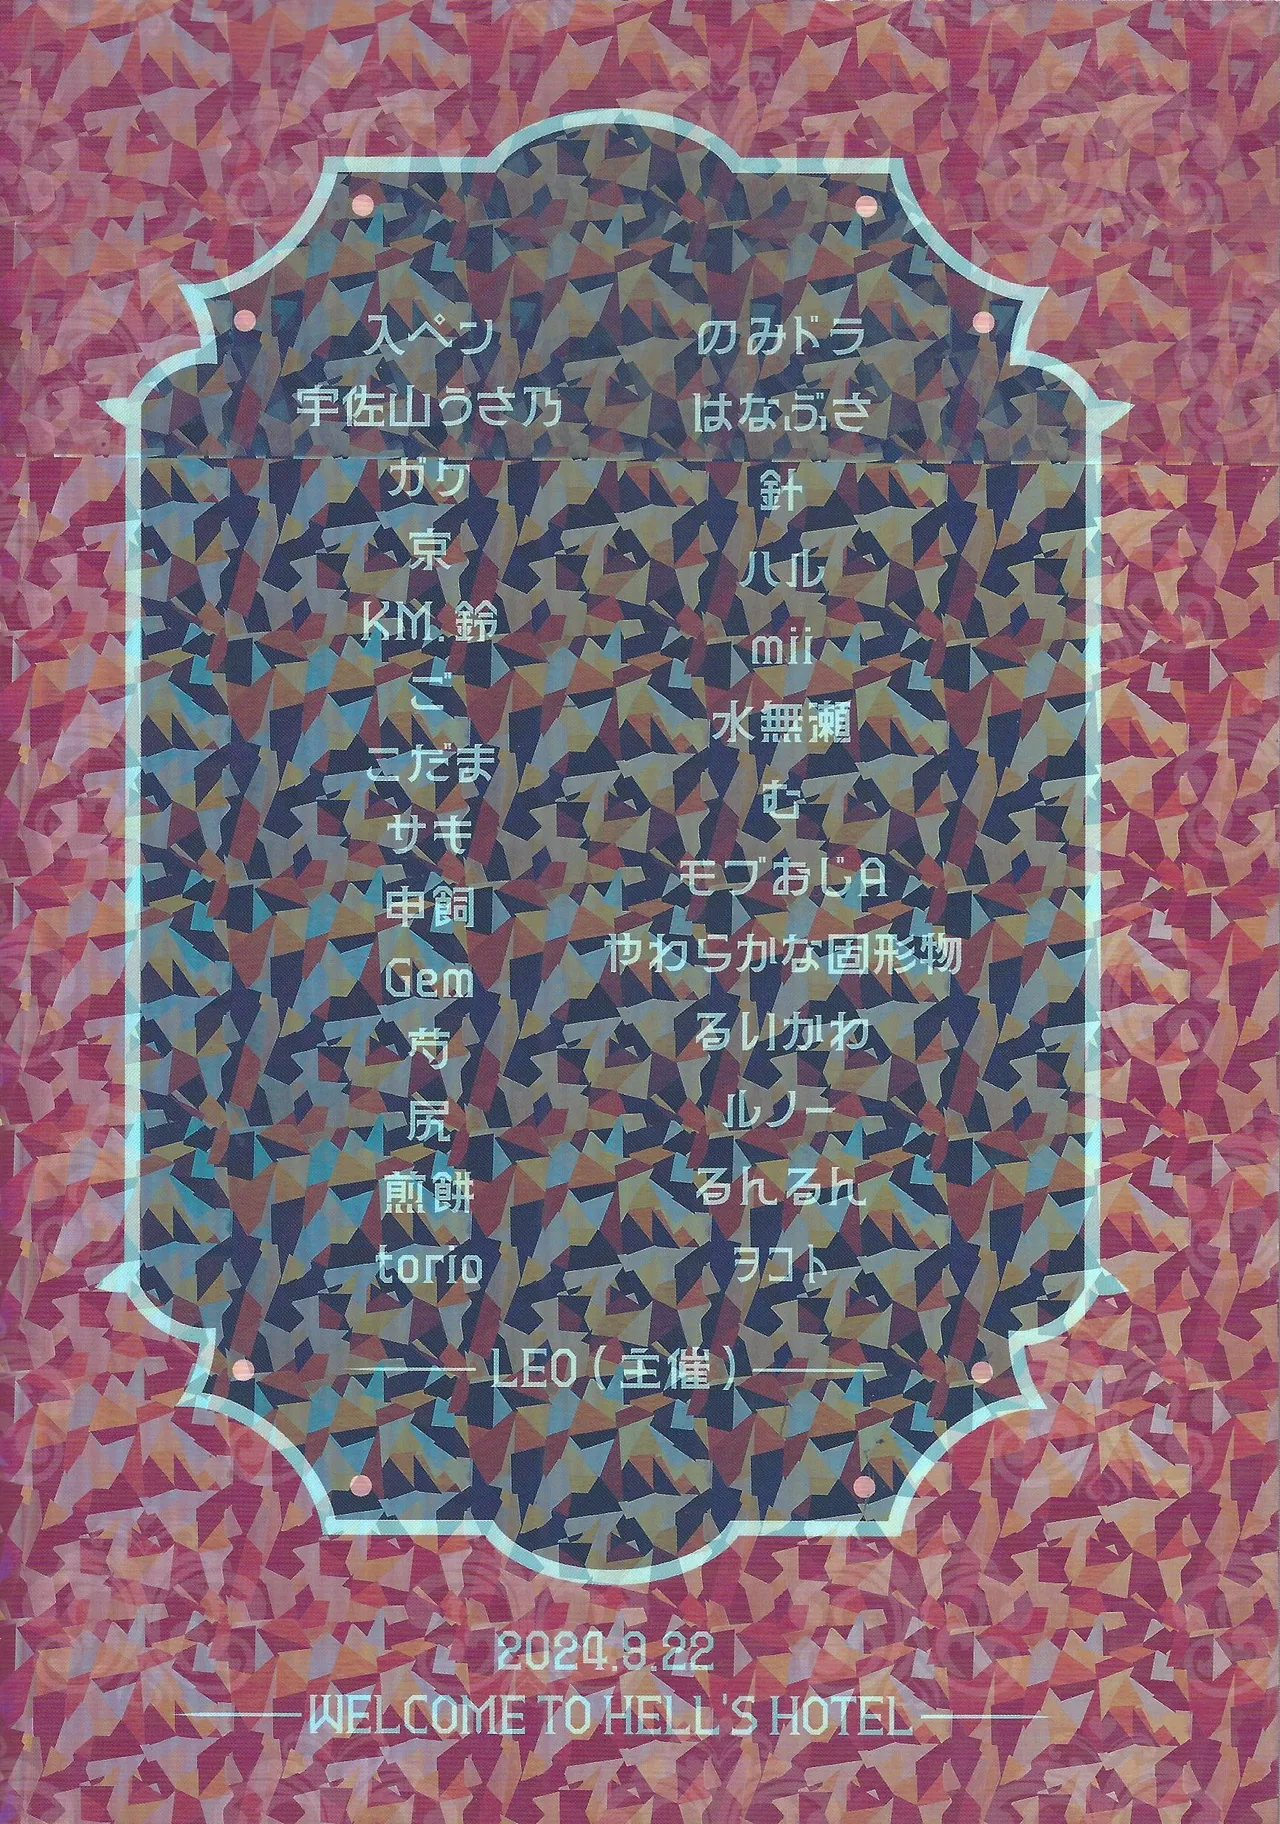 入ペン
宇佐山うさ乃
ガク
京
KM.鈴
ご
こだま
サキ
申飼
Gem
芍
尻
煎餅
torio
のみドラ
はなぶさ
針
ハル
mii
水無瀬
む
モブおじA
やわらかな固形物
るいかわ
ルノー
るんるん
ヲコト
LEO(主催)
2024.9.22
WELCOME TO HELL'S HOTEL